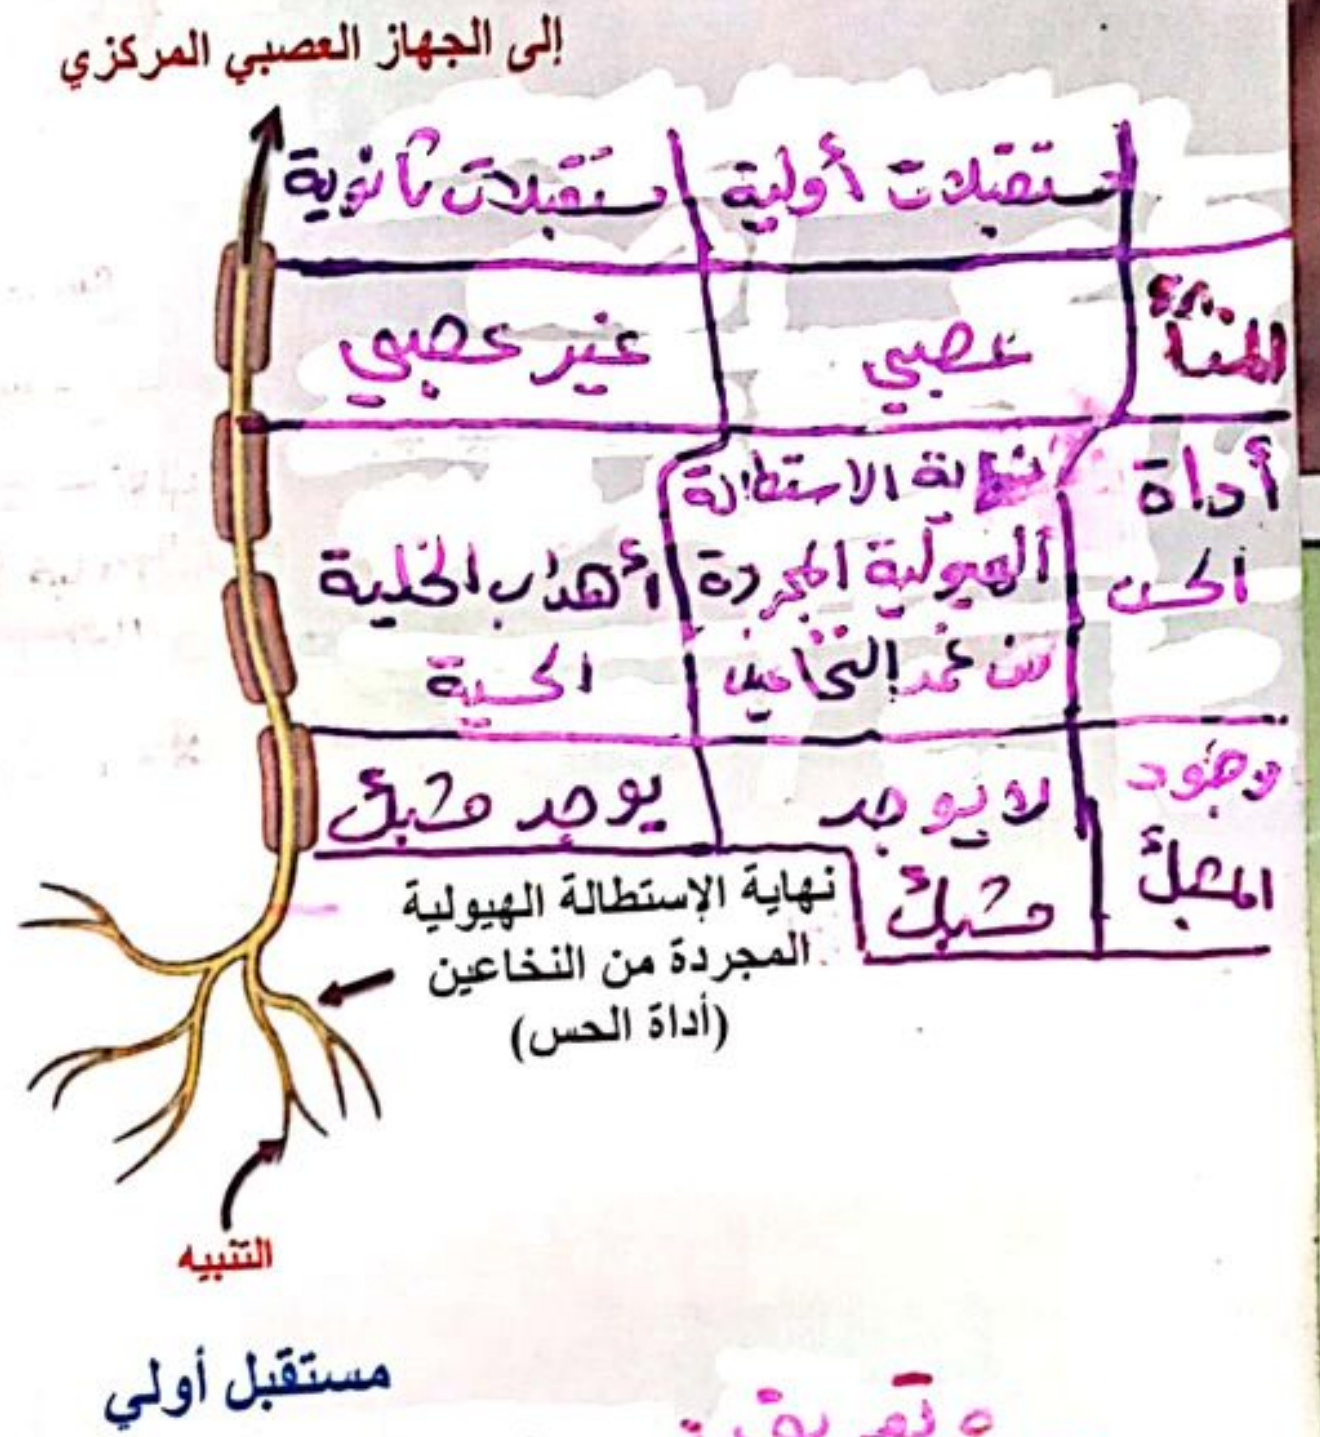 إلى الجهاز العصبي المركزي
مستقبلات أولية
مستقبلات ثانوية
المنشأ
عصبي
غير عصبي
أداة
الحس
نهاية الاستطالة
الهيولية المجردة
من غمد النخاعين
أهداب الخلية
الحسية
وجود
المشبك
لا يوجد
مشبك
يوجد مشبك
نهاية الإستطالة الهيولية
المجردة من النخاعين
(أداة الحس)
التنبيه
مستقبل أولي